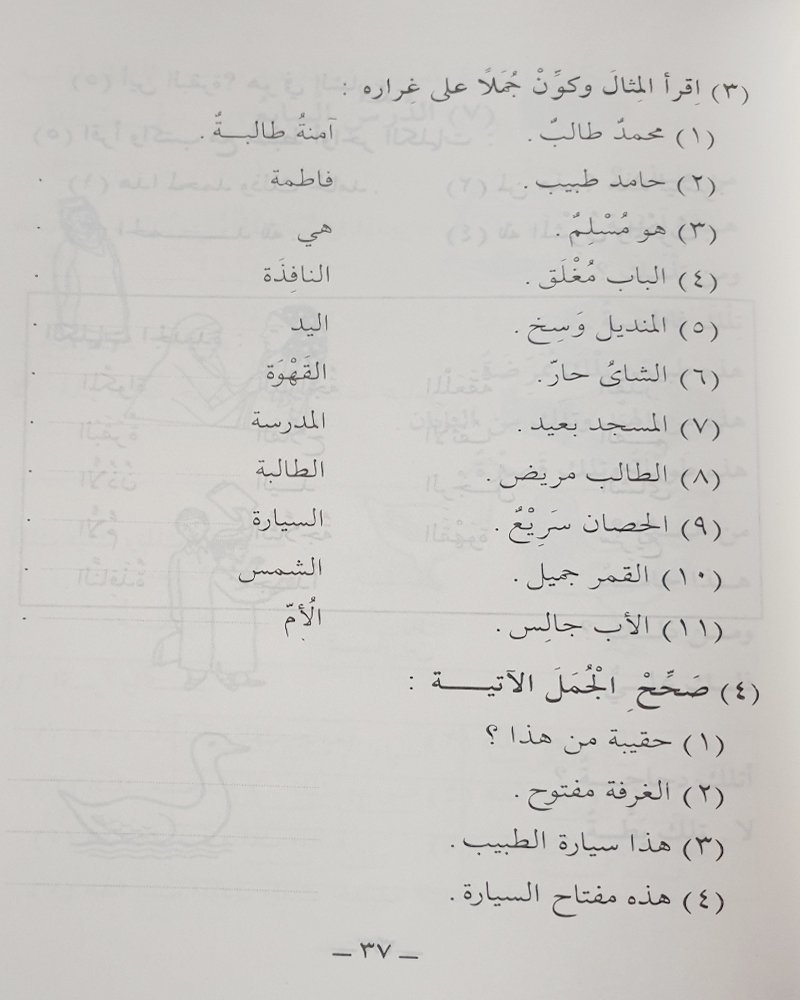 (٣) اِقرأ المِثالَ وكوِّنْ جُمَلًا على غِراره :
(١) محمدٌ طالبٌ . آمنةُ طالبــةٌ .
(٢) حامد طبيب . فاطمة .
(٣) هو مُسْلِمٌ . هي .
(٤) الباب مُغْلَق . النافِذَة .
(٥) المنديل وَسِخ . اليد .
(٦) الشايُ حارّ . القَهْوَة .
(٧) المسجد بعيد . المدرسة .
(٨) الطالب مريض . الطالبة .
(٩) الحصان سَرِيْعٌ . السيارة .
(١٠) القمر جميل . الشمس .
(١١) الأب جالِس . الُأمّ .
(٤) صَحِّحْ ِ الْجُمَلَ الآتيــــة :
(١) حقيبة من هذا ؟
(٢) الغرفة مفتوح .
(٣) هذا سيارة الطبيب .
(٤) هذه مفتاح السيارة .
– ٣٧ –